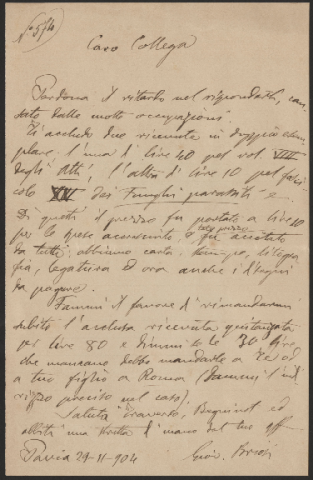 N° 574
Caro Collega
Perdona il ritardo nel risponderti, cau-
sato dalle molte occupazioni.
Ti accludo due ricevute in doppio esem-
plare l'una di lire 40 pel vol VIII
degli Atti, l'altra di lire 10 pel fasci
colo XVI dei Funghi parassiti
Di questi il prezzo fu portato a lire 10
per le spese accresciute e fu accettato
da tutti; abbiamo carta, stampa, litogra
fia, legatura ed ora anche i disegni
da pagare.
Fammi il favore di rimandarmi
subito l'acclusa ricevuta quitanzata
per lire 80 e dimmi se le 30 lire
che mancano debbo mandarle a te od
a tuo figlio a Roma (dammi l'indi
rizzo preciso nel caso).
Saluta Traverso, Beguinot ed
abbiti una stretta di mano dal tuo aff
Pavia 29-11-904 Giov. Briosi